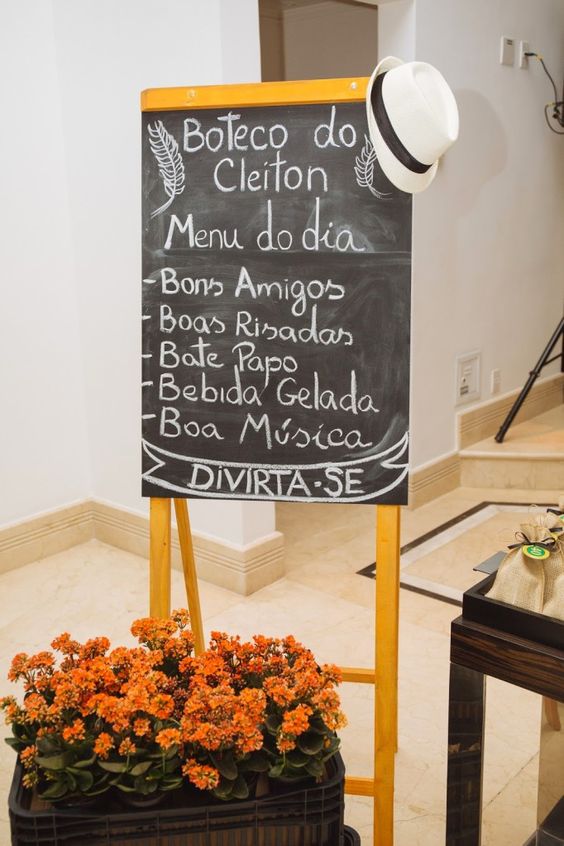 Boteco do
Cleiton
Menu do dia
- Bons Amigos
- Boas Risadas
- Bate Papo
- Bebida Gelada
- Boa Música
DIVIRTA-SE